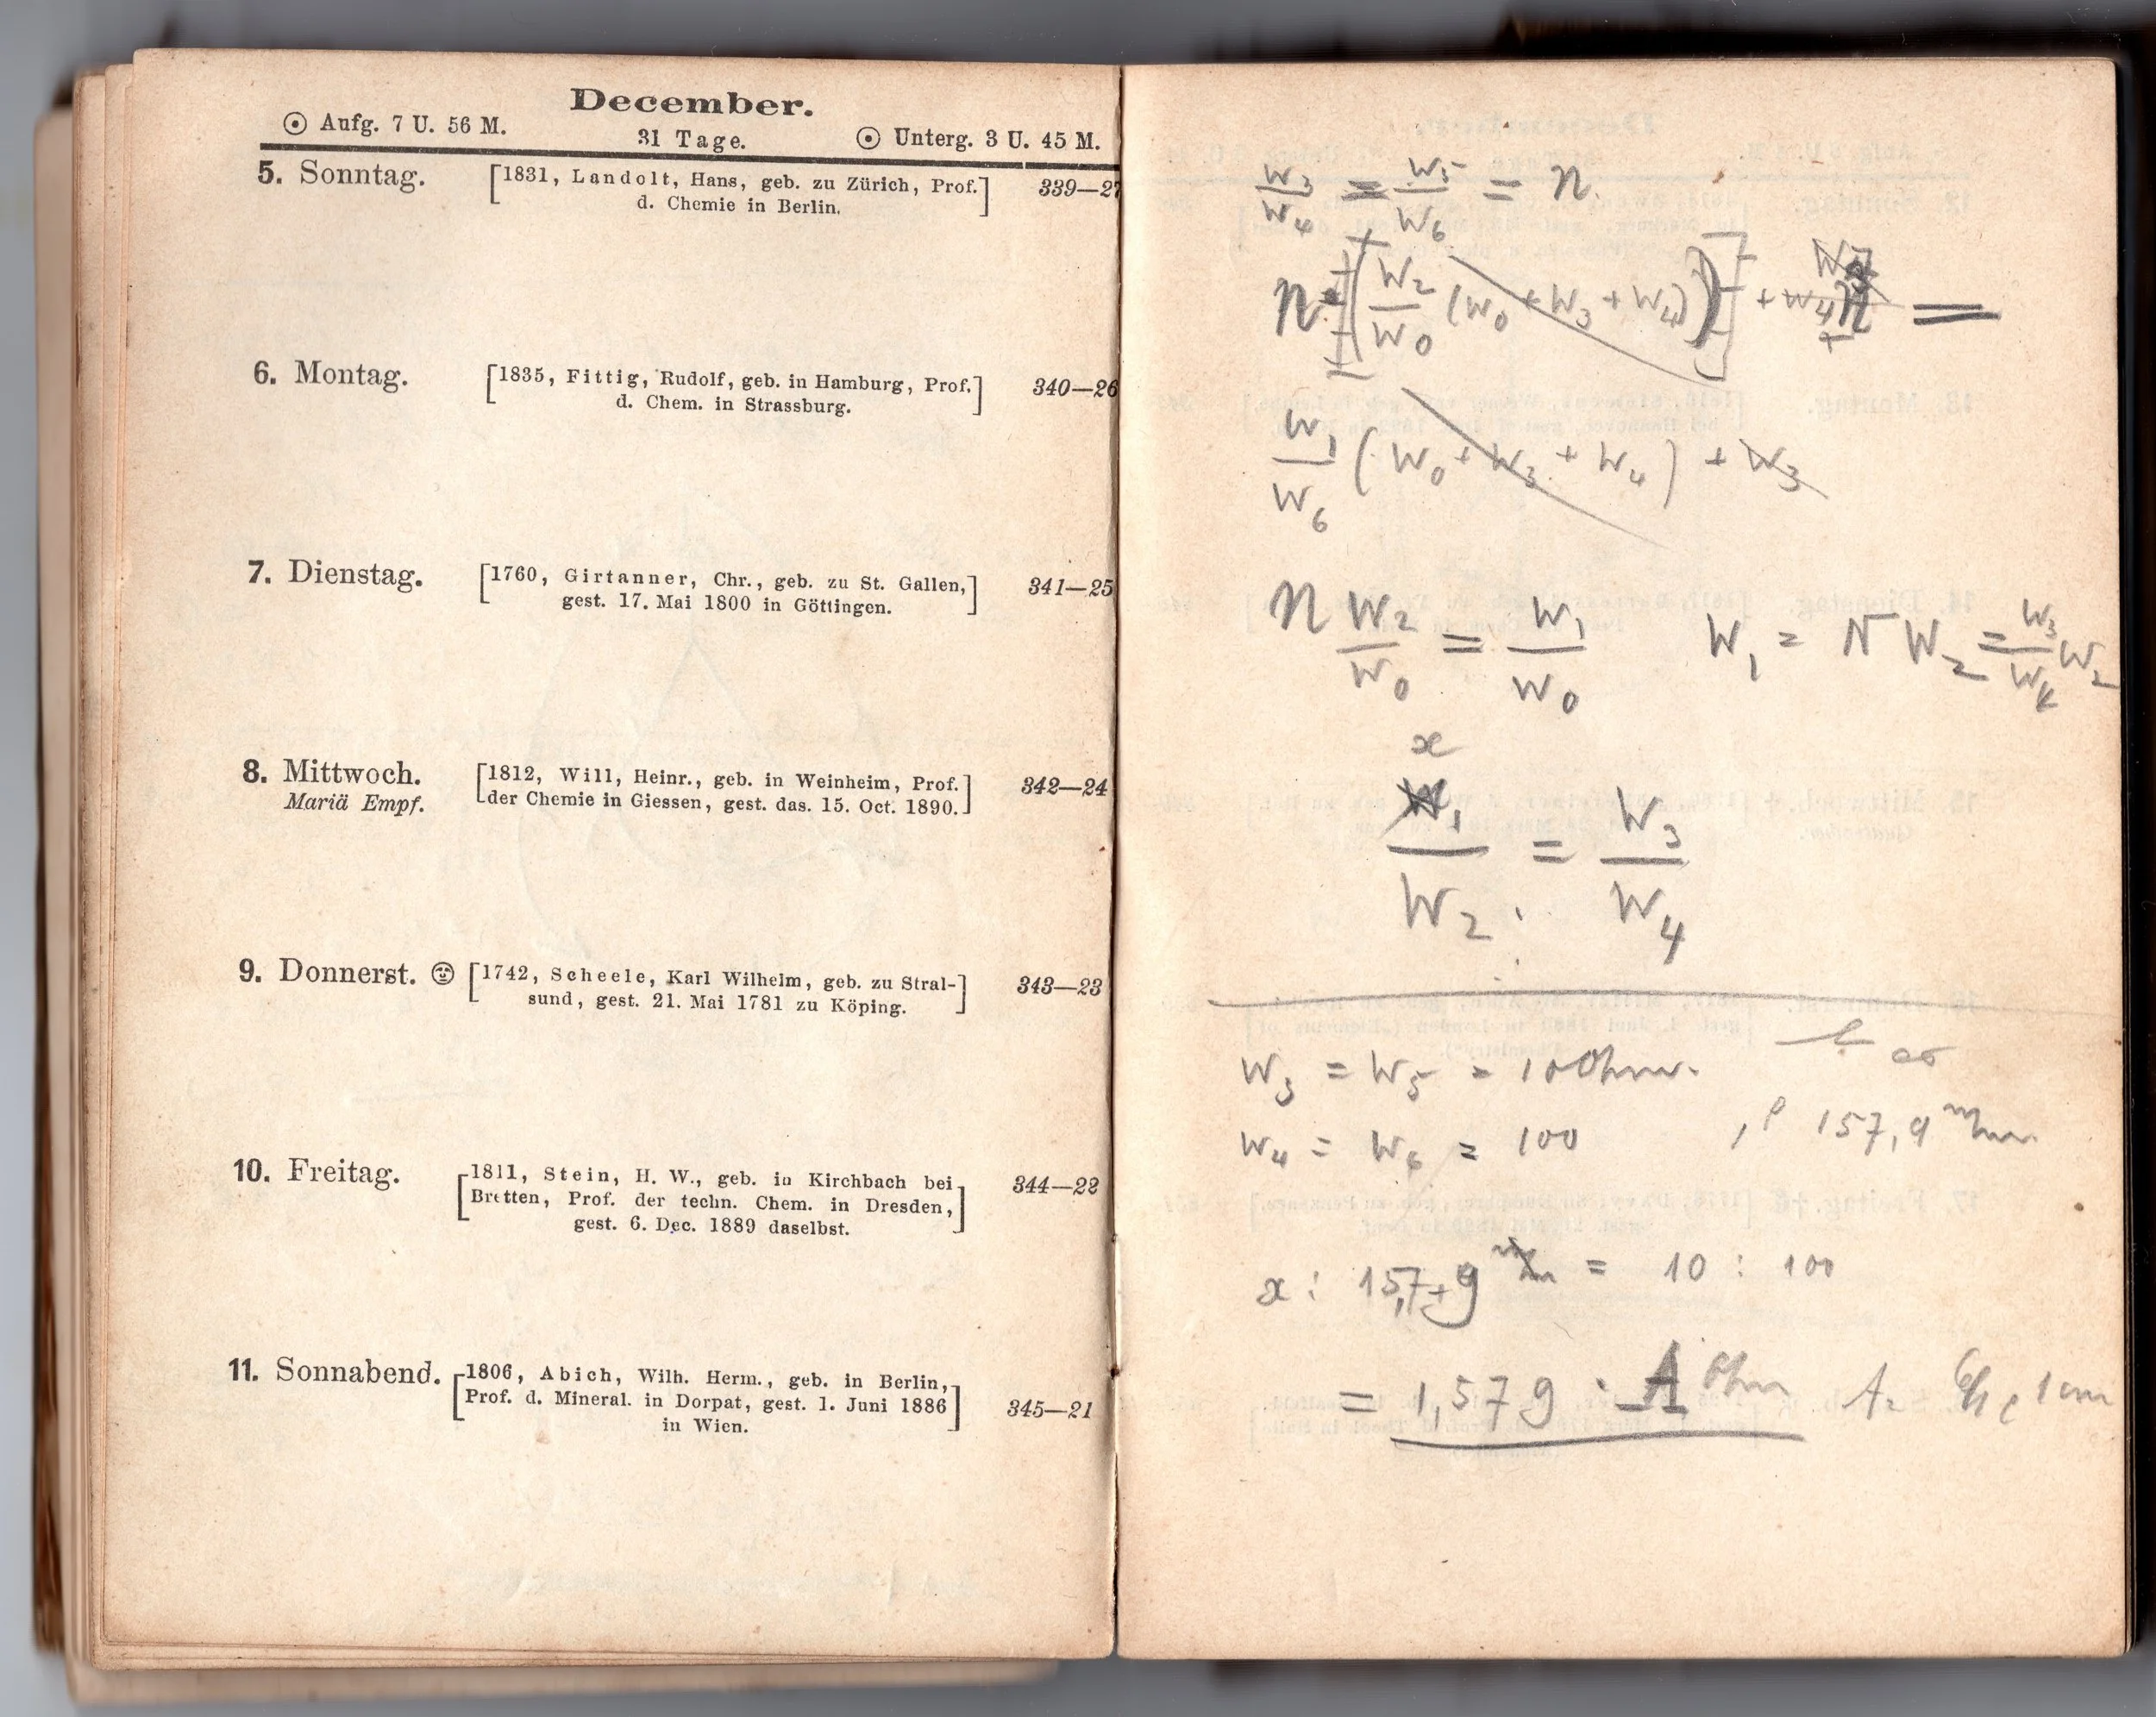 December.
☉ Aufg. 7 U. 56 M.
31 Tage.
☉ Unterg. 3 U. 45 M.
5. Sonntag. [1831, Landolt, Hans, geb. zu Zürich, Prof. d. Chemie in Berlin.] 339—27
6. Montag. [1835, Fittig, Rudolf, geb. in Hamburg, Prof. d. Chem. in Strassburg.] 340—26
7. Dienstag. [1760, Girtanner, Chr., geb. zu St. Gallen, gest. 17. Mai 1800 in Göttingen.] 341—25
8. Mittwoch. [1812, Will, Heinr., geb. in Weinheim, Prof. der Chemie in Giessen, gest. das. 15. Oct. 1890.] 342—24
Mariä Empf.
9. Donnerst. [1742, Scheele, Karl Wilhelm, geb. zu Stralsund, gest. 21. Mai 1781 zu Köping.] 343—23
10. Freitag. [1811, Stein, H. W., geb. in Kirchbach bei Bretten, Prof. der techn. Chem. in Dresden, gest. 6. Dec. 1889 daselbst.] 344—22
11. Sonnabend. [1806, Abich, Wilh. Herm., geb. in Berlin, Prof. d. Mineral. in Dorpat, gest. 1. Juni 1886 in Wien.] 345—21
W3/W4 = W5/W6 = n.
n [(W2/W0 (W0 + W3 + W4))] + W4 n =
W1/W6 (W0 + W3 + W4) + W3
n W2/W0 = W1/W0 W1 = n W2 = W3/W4 W2
x
W1/W2 = W3/W4
W3 = W5 = 10 Ohm.
W4 = W6 = 100 157,9
x : 157,9 = 10 : 100
= 1,579 · A Ohm 1 cm